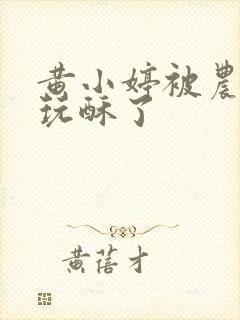 黄小婷被農
玩酥了
黄蓓才